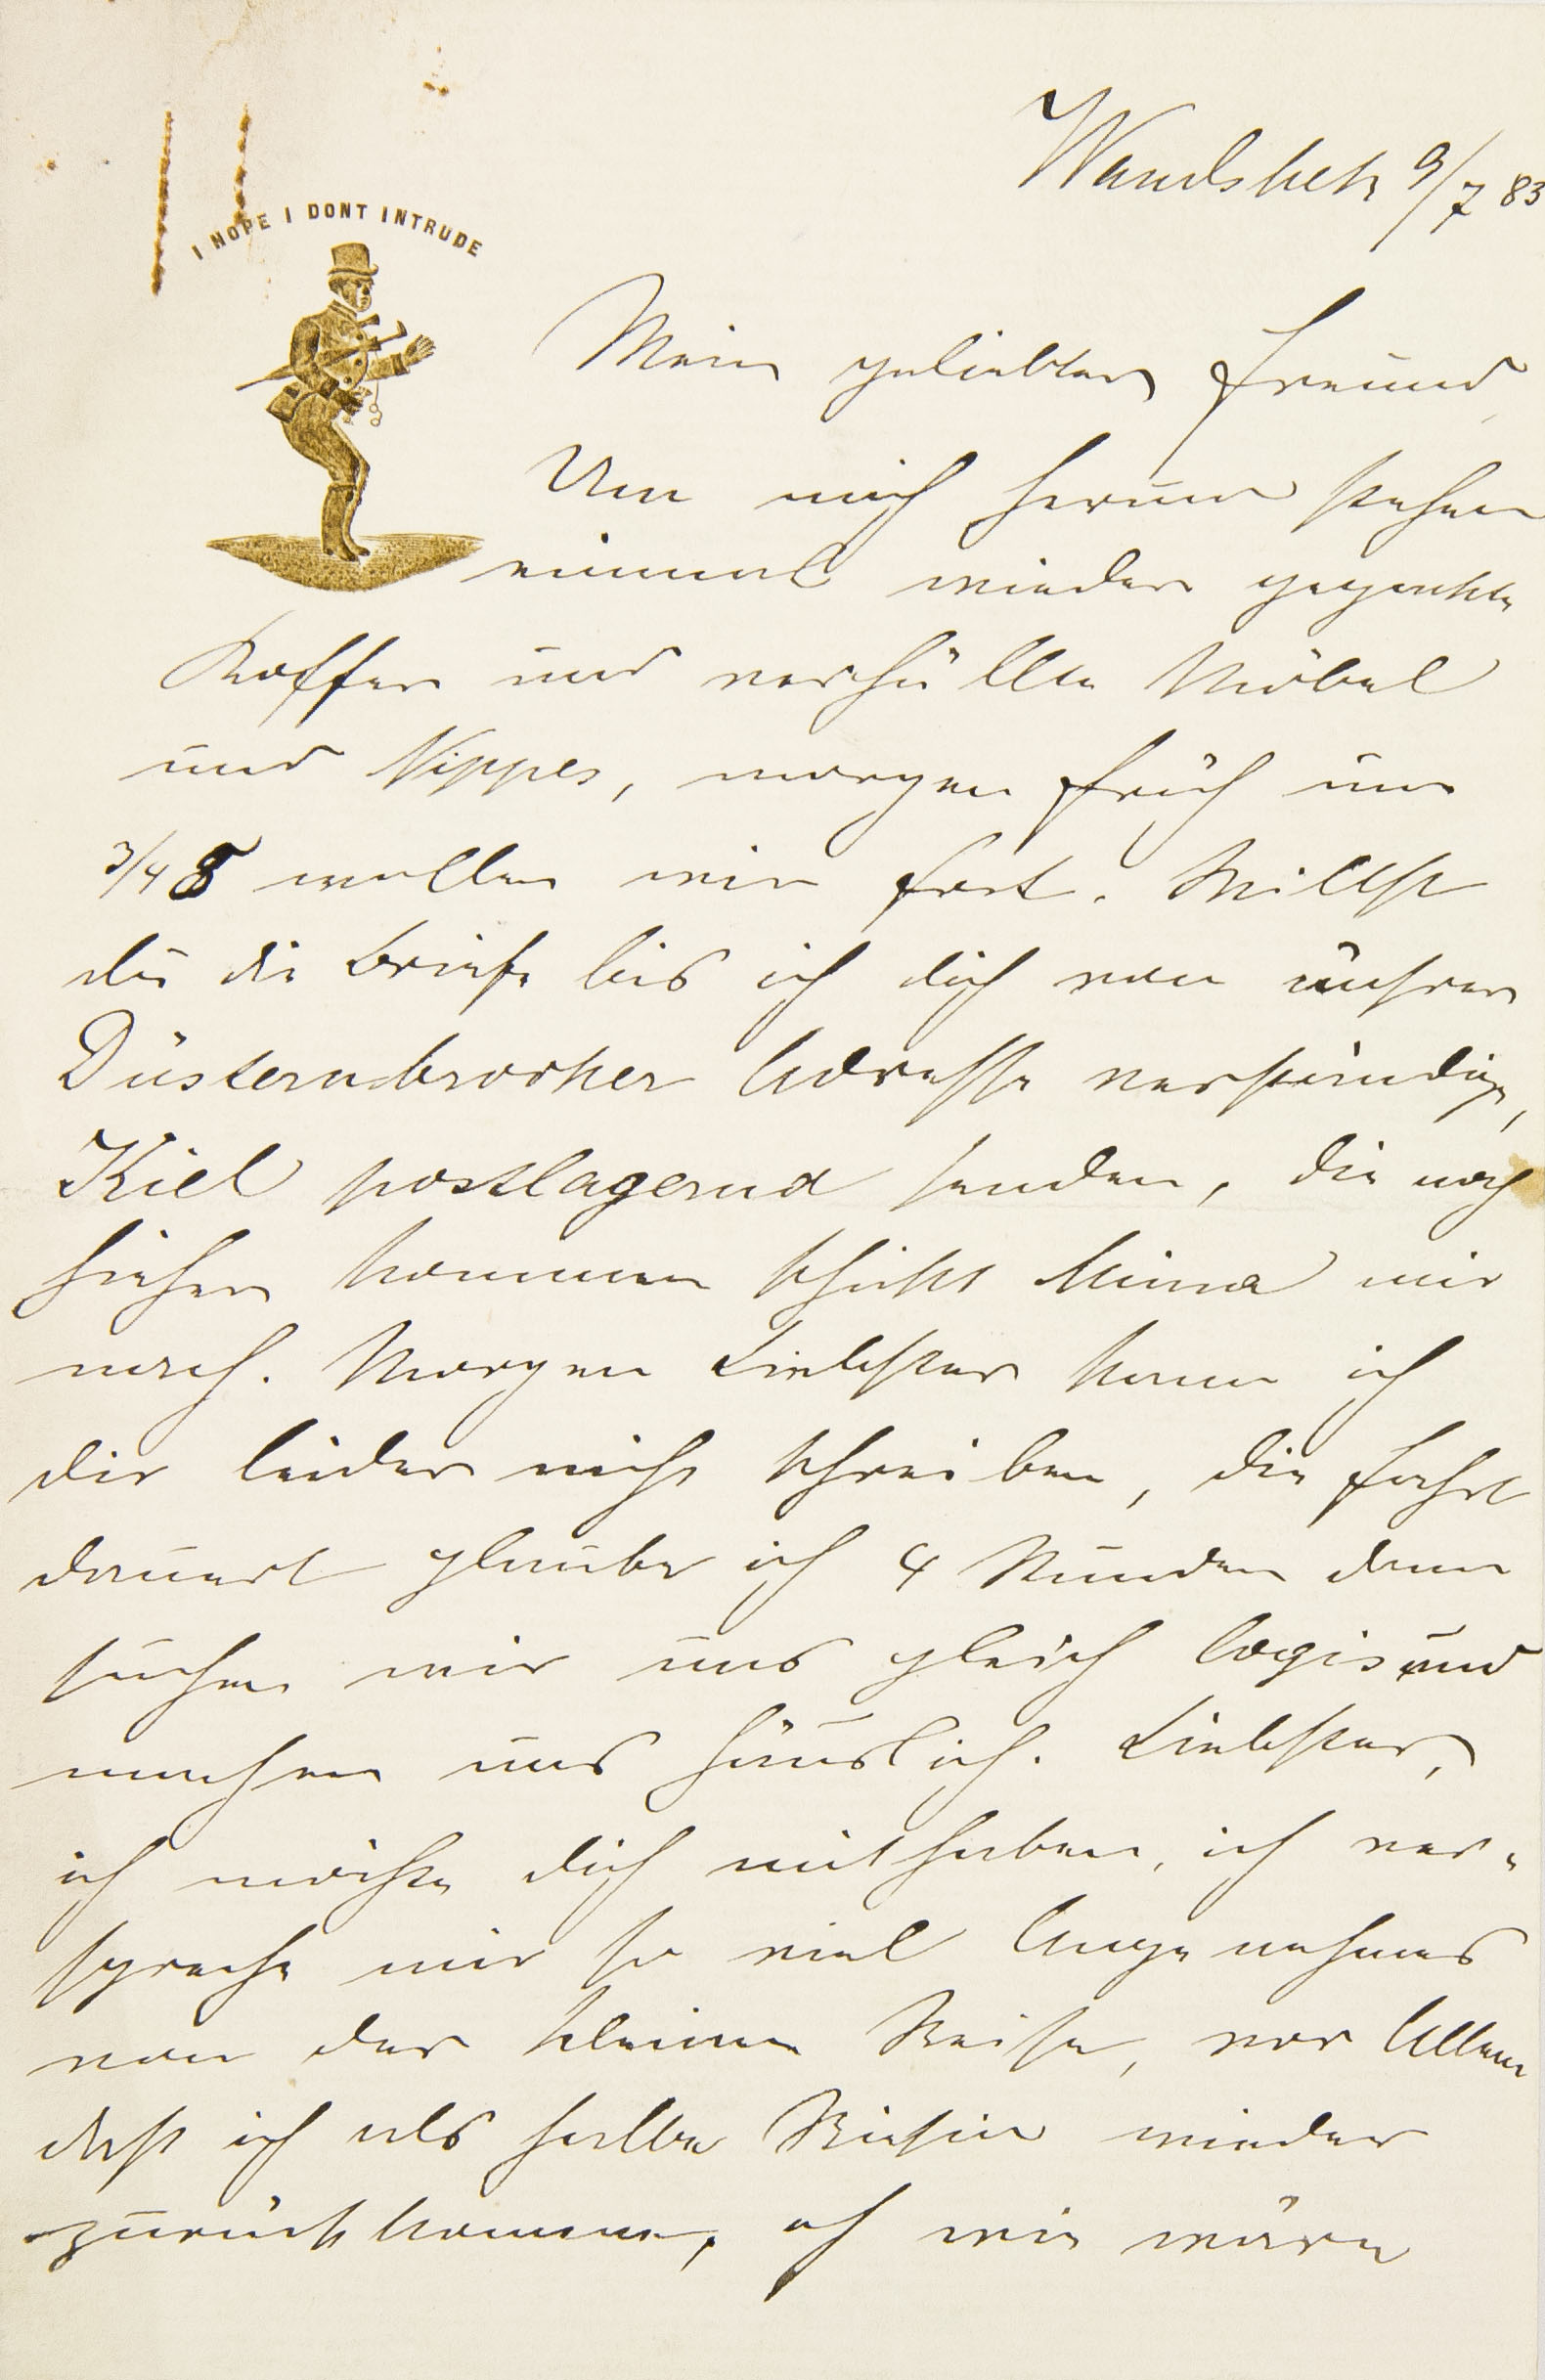 I HOPE I DONT INTRUDE
Wandsbek 9/7 83
Mein geliebter Freund
Um mich herum stehen
einmal wieder gepackte
Koffer und verhüllte Möbel
und Nippes, morgen früh um
3/4 8 wollen wir fort. Willst
du die Briefe bis ich dich von unsrer
Düsternbrooker Adresse verständige,
Kiel postlagernd senden, die noch
hieher kommen schickt Mina mir
nach. Morgen Liebster kann ich
dir leider nicht schreiben, die Fahrt
dauert glaube ich 4 Stunden dann
suchen wir uns gleich Logis und
machen uns häuslich. Liebster,
ich möchte dich mithaben, ich ver-
spreche mir so viel Angenehmes
von der kleinen Reise, vor Allem
daß ich als halbe Riesin wieder
zurück komme, ach wie wäre